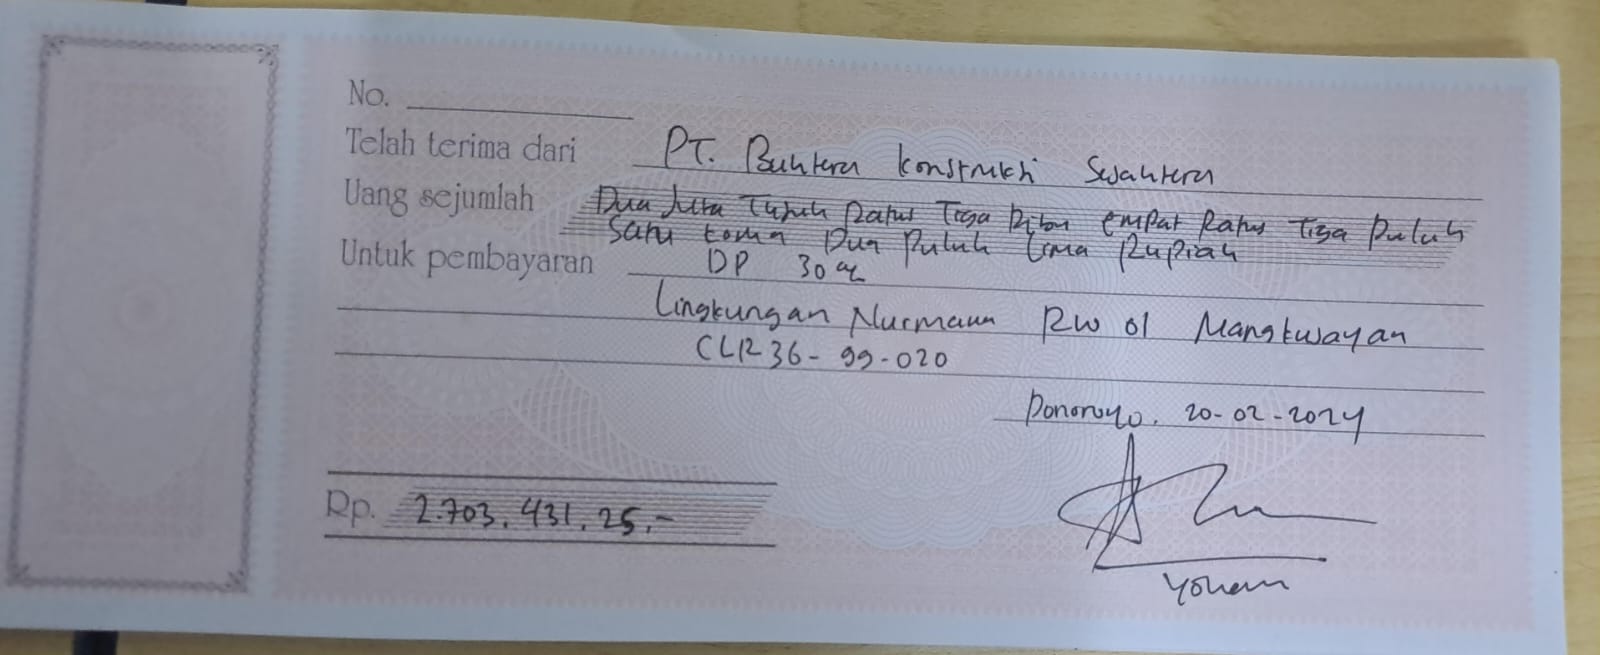 No.
Telah terima dari PT. Bahtera Konstruksi Sejahtera
Uang sejumlah Dua Juta Tujuh Ratus Tiga Ribu empat Ratus Tiga Puluh
Satu koma Dua Puluh Lima Rupiah
Untuk pembayaran DP 30%
Lingkungan RW 01 Mangkuyayan
CLR36-99-020
Ponorogo, 20-02-2024
Rp. 2.703.431,25.-